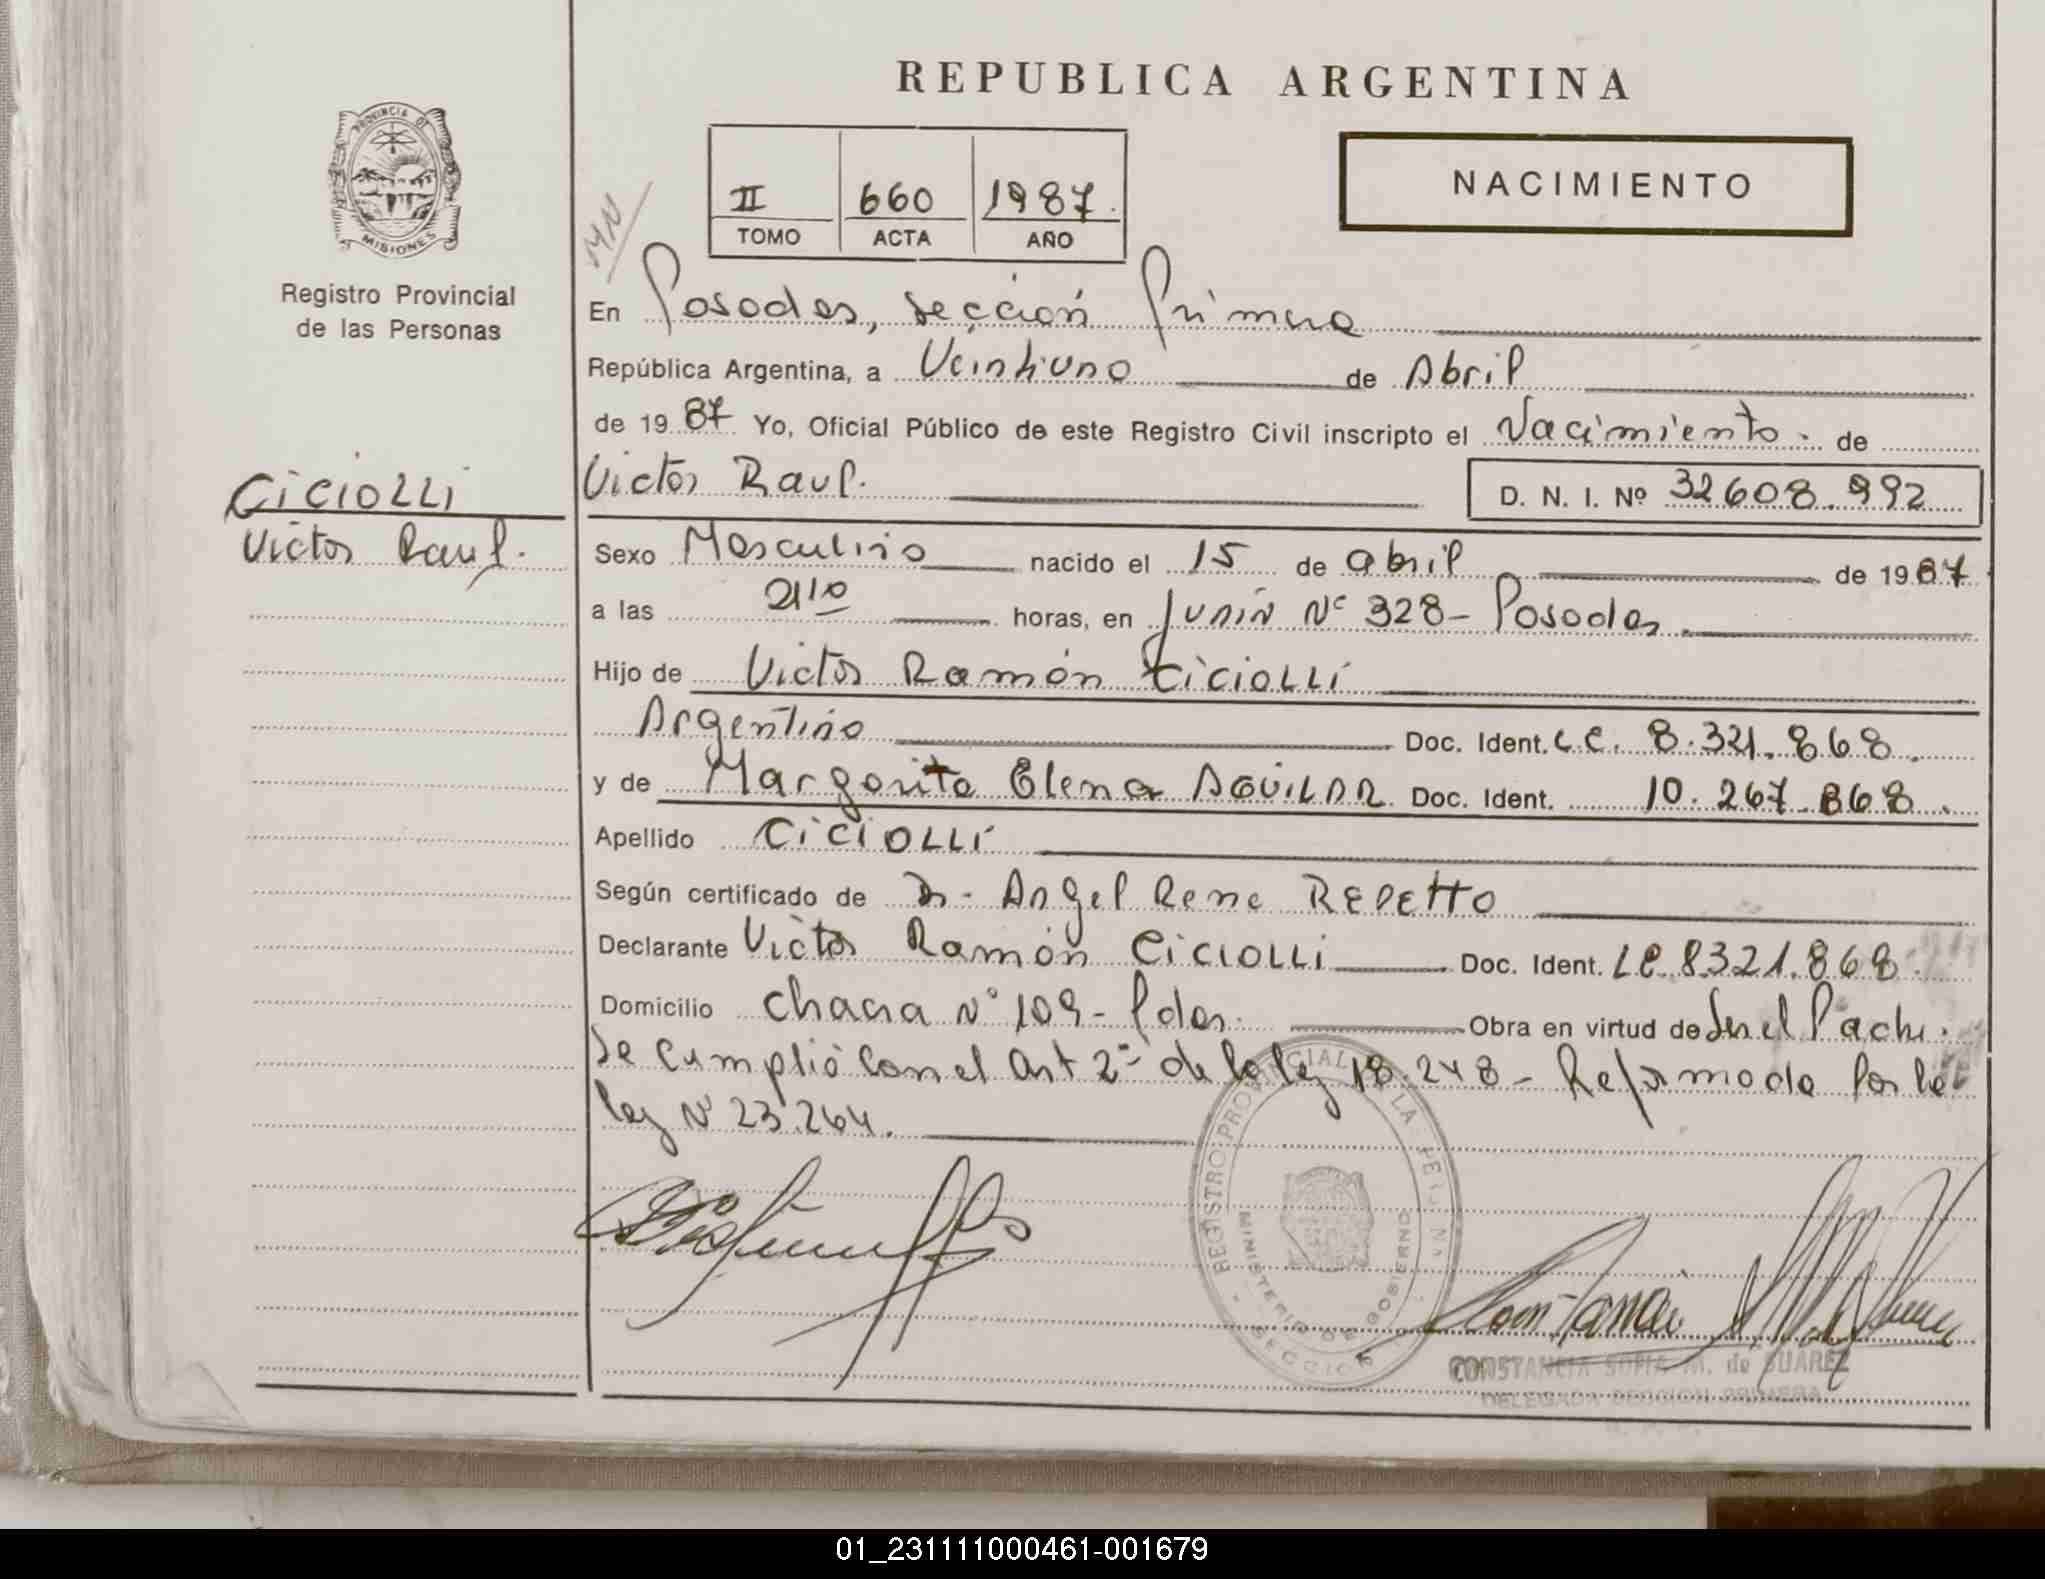 REPUBLICA ARGENTINA
PROVINCIA DE
MISIONES
Registro Provincial
de las Personas
II 660 1987.
TOMO ACTA AÑO
NACIMIENTO
En Posadas, Sección Primera
República Argentina, a Veintiuno de Abril
de 1987 Yo, Oficial Público de este Registro Civil inscripto el Nacimiento. de
CICIOLLI
Victor Raul.
Victor Raul. D. N. I. Nº 32.608.992
Sexo Masculino nacido el 15 de abril de 1987
a las 21 10 horas, en Junín Nº 328 - Posadas.
Hijo de Victor Ramón CICIOLLI
Argentino Doc. Ident. L.E. 8.321.868.
y de Margarita Elena AGUILAR Doc. Ident. 10.267.868.
Apellido CICIOLLI
Según certificado de Dr. Angel Rene REPETTO
Declarante Victor Ramón CICIOLLI Doc. Ident. LE. 8321.868.
Domicilio Chacra Nº 109 - Pdas. Obra en virtud de Ser el Padre.
Se cumplió con el Art 2º de la ley 18.248 - Reformada por la
ley Nº 23.264.
REGISTRO PROVINCIAL DE LA
MINISTERIO DE GOBIERNO
SECCION
CONSTANCIA SOFIA M. de SUAREZ
DELEGADA SECCION PRIMERA
01_231111000461-001679